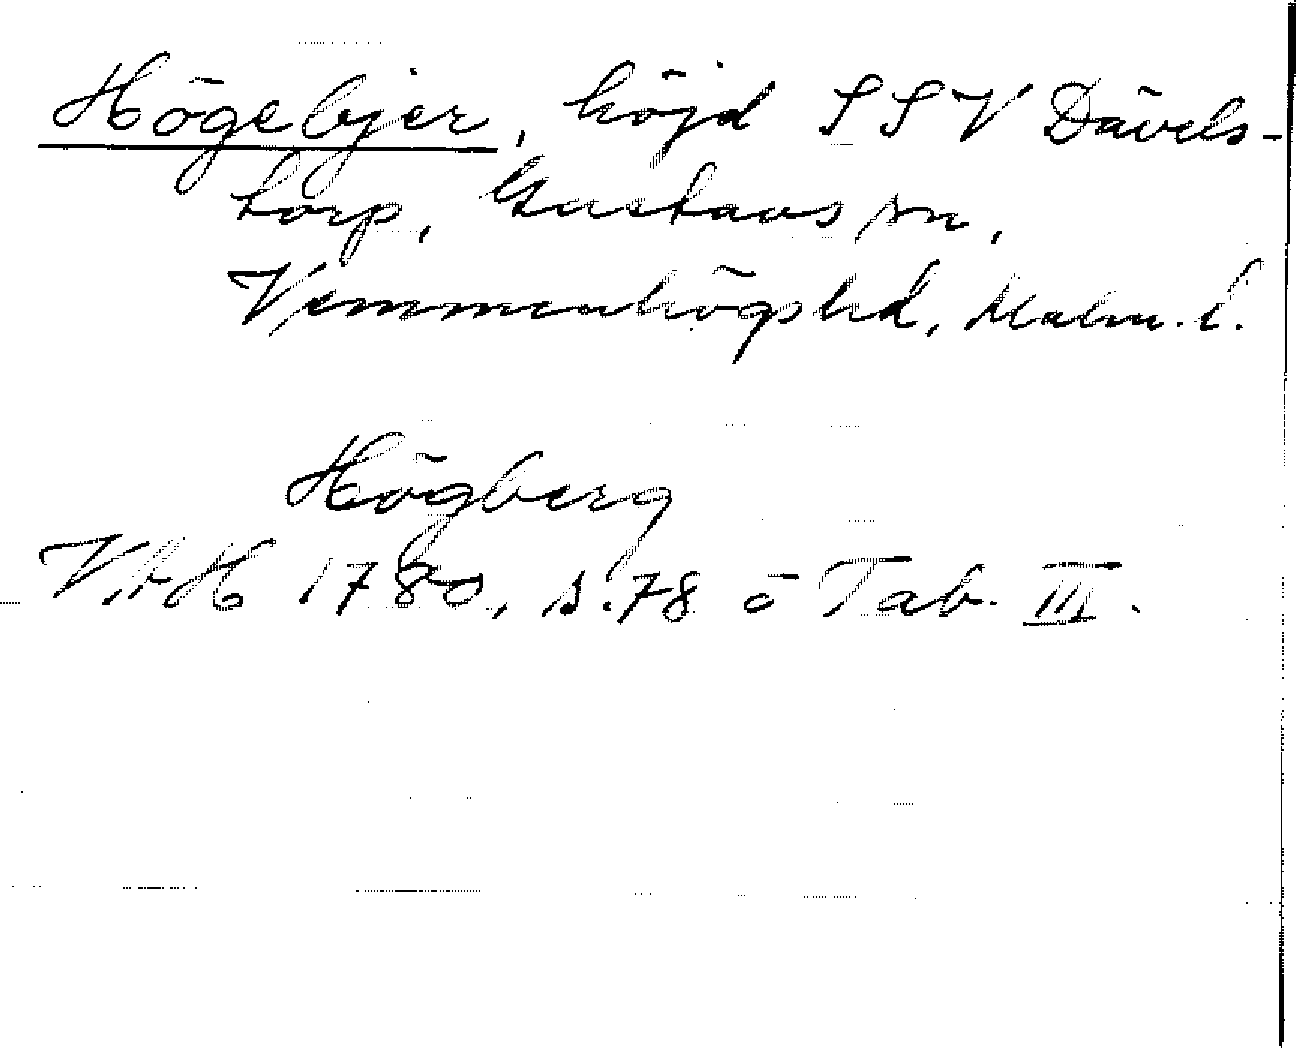 Högebjer, höjd SSV Dävels-
torp, Gustavs sn,
Vemmenhögs hd, Malm. l.
Högberg
VAH 1780, s. 78 o Tab. III.